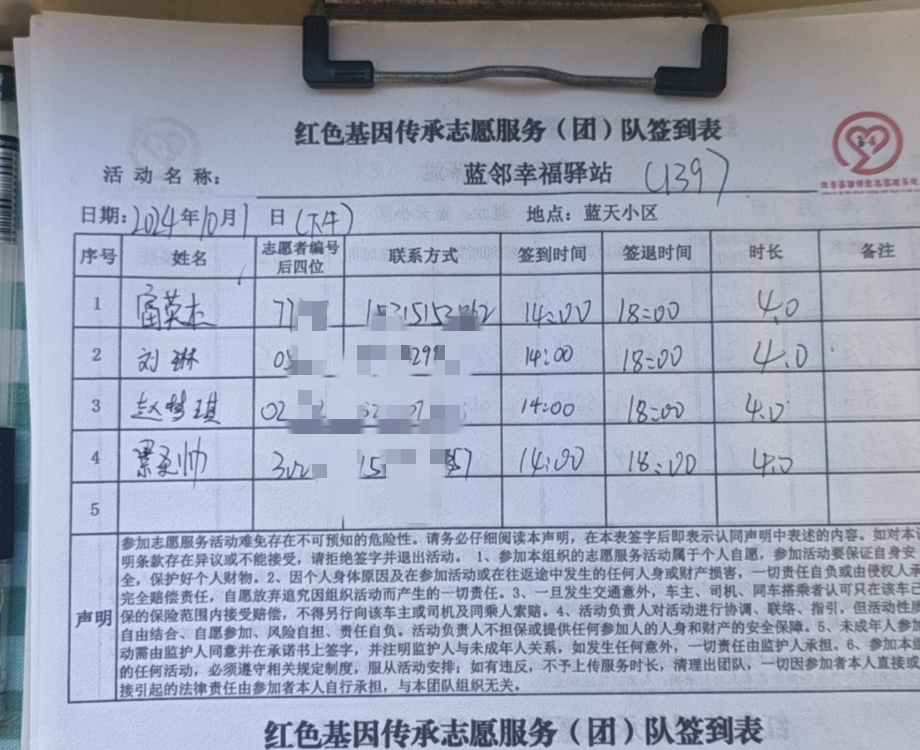 红色基因传承志愿服务（团）队签到表
活动名称： 蓝邻幸福驿站 (139)
日期:2024年10月1日(下午) 地点：蓝天小区
序号 姓名 志愿者编号后四位 联系方式 签到时间 签退时间 时长 备注
1 富英杰 14:00 18:00 4.0
2 刘琳 05 29 14:00 18:00 4.0
3 赵梦琪 02 14:00 18:00 4.0
4 帅 14:00 18:00 4.0
5
声明
参加志愿服务活动难免存在不可预知的危险性。请务必仔细阅读本声明，在本表签字后即表示认同声明中表述的内容。如对本
明条款存在异议或不能接受，请拒绝签字并退出活动。 1、参加本组织的志愿服务活动属于个人自愿，参加活动要保证自身安
全，保护好个人财物。2、因个人身体原因及在参加活动或在往返途中发生的任何人身或财产损害，一切责任自负或由侵权人承
完全赔偿责任，自愿放弃追究因组织活动而产生的一切责任。3、一旦发生交通意外，车主、司机、同车搭乘者认可只在该车已
保的保险范围内接受赔偿，不得另行向该车主或司机及同乘人索赔。4、活动负责人对活动进行协调、联络、指引，但活动性质
自由结合、自愿参加、风险自担、责任自负。活动负责人不担保或提供任何参加人的人身和财产的安全保障。5、未成年人参加
动需由监护人同意并在承诺书上签字，并注明监护人与未成年人关系，如发生任何意外，一切责任由监护人承担。6、参加本组
的任何活动，必须遵守相关规定制度，服从活动安排；如有违反，不予上传服务时长，清理出团队，一切因参加者本人直接或
接引起的法律责任由参加者本人自行承担，与本团队组织无关。
红色基因传承志愿服务（团）队签到表